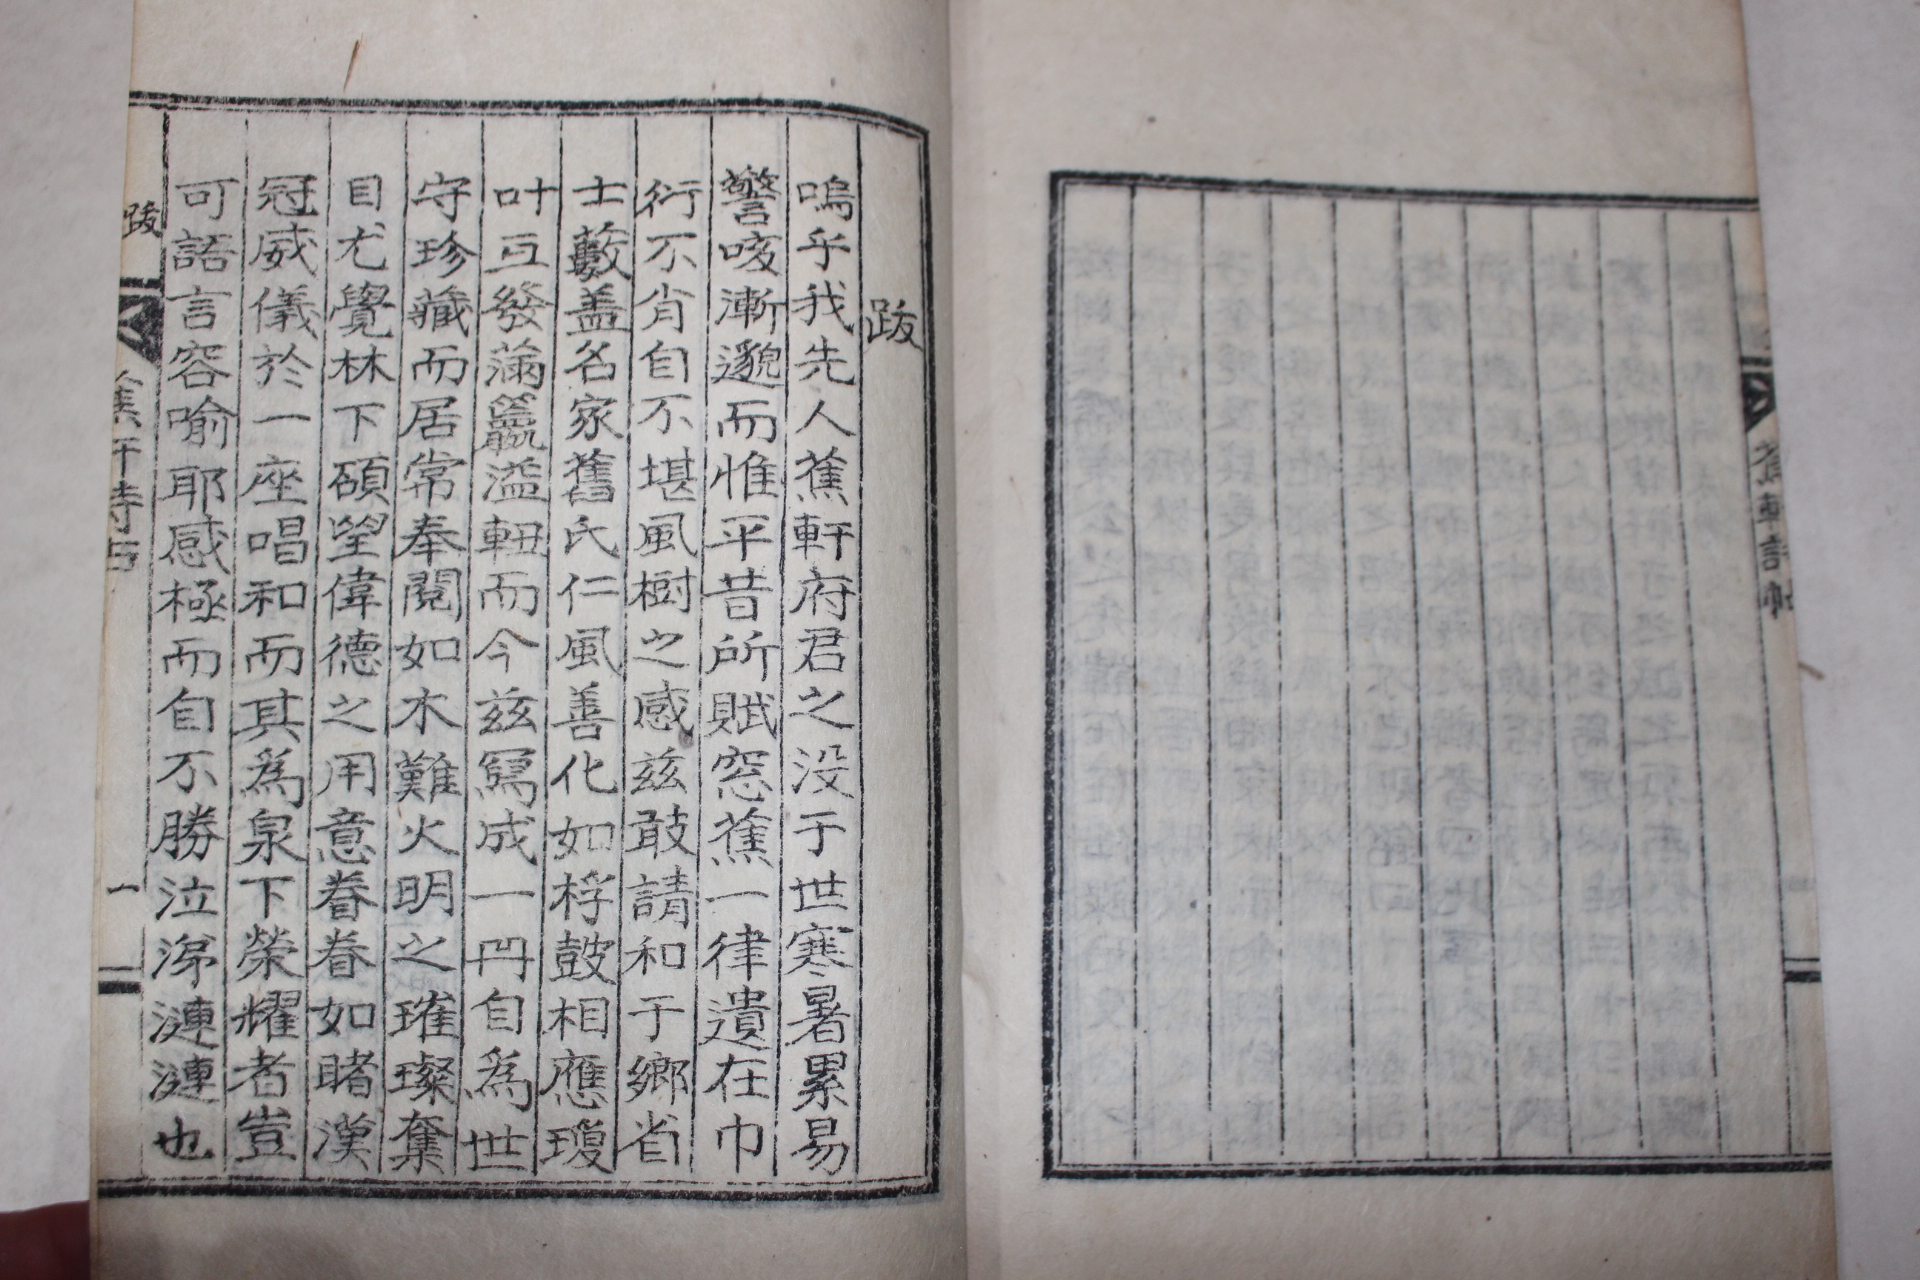 蕉軒詩帖
跋
嗚乎我先人蕉軒府君之没于世寒暑累易
謦咳漸邈而惟平昔所賦窓蕉一律遺在巾
衍不肖自不堪風樹之感玆敢請和于鄉省
士藪盖名家舊氏仁風善化如桴鼓相應瓊
叶互發滿籯溢軸而今玆寫成一冊自爲世
守珍藏而居常奉閱如木難火明之璀璨奪
目尤覺林下碩望偉德之用意眷眷如睹漢
冠威儀於一座唱和而其爲泉下榮耀者豈
可語言容喩耶感極而自不勝泣涕漣漣也
跋
一